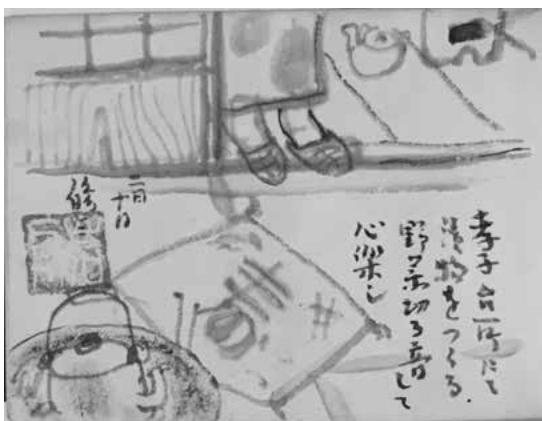 孝子台所にて
漬物をつくる.
野菜切る音して
心楽し
二月
十日